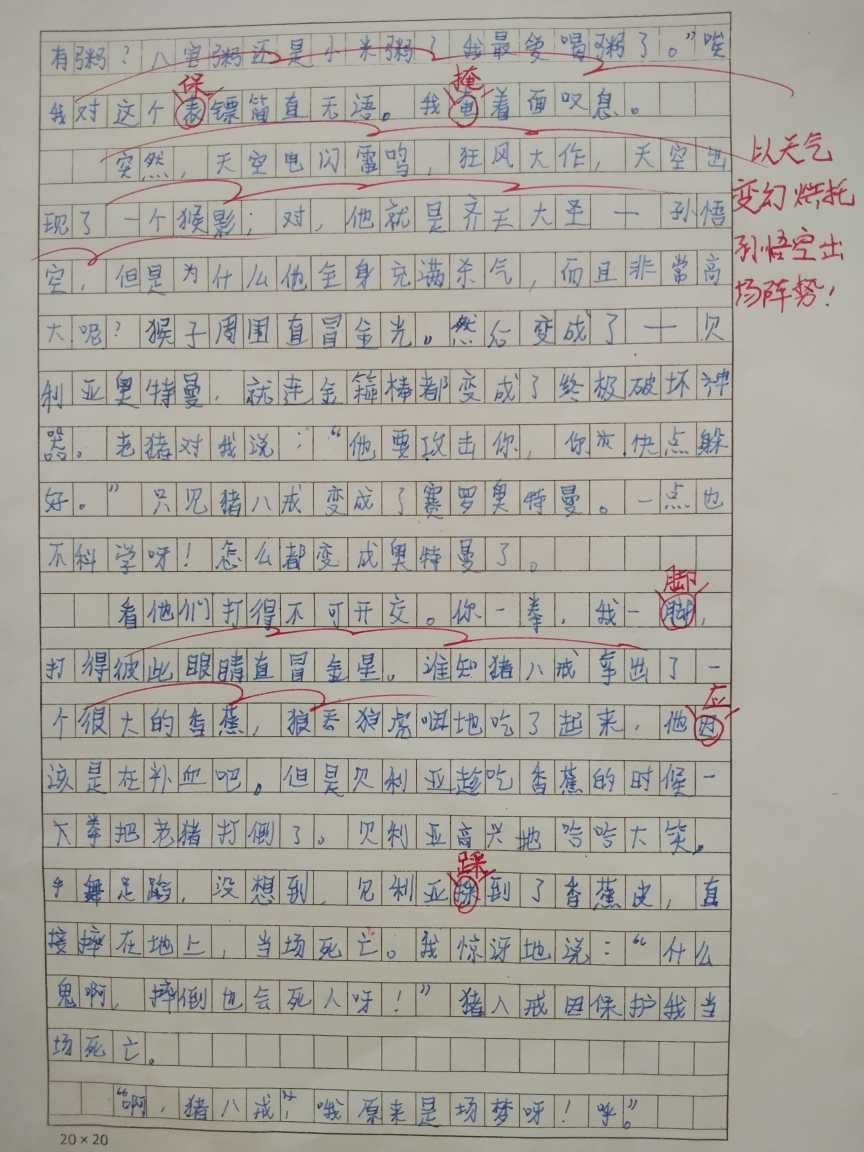 有粥？八宝粥还是小米粥？我最爱喝粥了。”唉
保 掩
我对这个表镖简直无语。我电着面叹息。
突然，天空电闪雷鸣，狂风大作，天空出
现了一个猴影；对，他就是齐天大圣——孙悟
空，但是为什么他全身充满杀气，而且非常高
大呢？猴子周围直冒金光。然后变成了——贝
利亚奥特曼，就连金箍棒都变成了终极破坏神
器。老猪对我说：“他要攻击你，你快点躲
好。”只见猪八戒变成了赛罗奥特曼。一点也
不科学呀！怎么都变成奥特曼了。
脚
看他们打得不可开交。你一拳，我一，
打得彼此眼睛直冒金星。谁知猪八戒拿出了一
应
个很大的香蕉，狼吞狼虎咽地吃了起来，他因
该是在补血吧。但是贝利亚趁吃香蕉的时候一
下拳把老猪打倒了。贝利亚高兴地哈哈大笑。
踩
手舞足蹈，没想到，贝利亚到了香蕉皮，直
接摔在地上，当场死亡。我惊讶地说：“什么
鬼啊，摔倒也会死人呀！”猪八戒因保护我当
场死亡。
“啊，猪八戒”，哦原来是场梦呀！呼。”
20×20
以天气
变幻烘托
孙悟空出
场阵势！